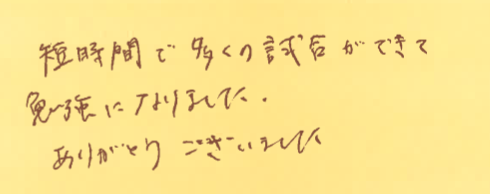 短時間で多くの試合ができて
勉強になりました.
ありがとうございました